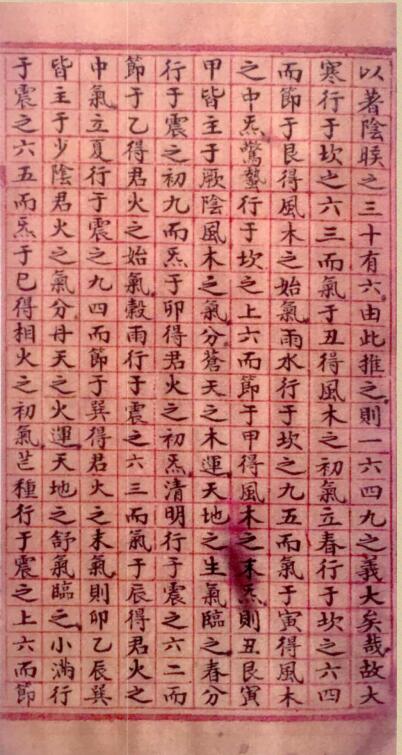 以著陰睽之三十有六由此推之則一六四九之義大矣哉故大
寒行于坎之六三而氣于丑得風木之初氣立春行于坎之六四
而節于艮得風木之始氣雨水行于坎之九五而氣于寅得風木
之中炁驚蟄行于坎之上六而節于甲得風木之末炁則丑艮寅
甲皆主于厥陰風木之氣分蒼天之木運天地之生氣臨之春分
行于震之初九而炁于卯得君火之初炁清明行于震之六二而
節于乙得君火之始氣穀雨行于震之六三而氣于辰得君火之
中氣立夏行于震之九四而節于巽得君火之末氣則卯乙辰巽
皆主于少陰君火之氣分丹天之火運天地之舒氣臨之小滿行
于震之六五而炁于巳得相火之初氣芒種行于震之上六而節